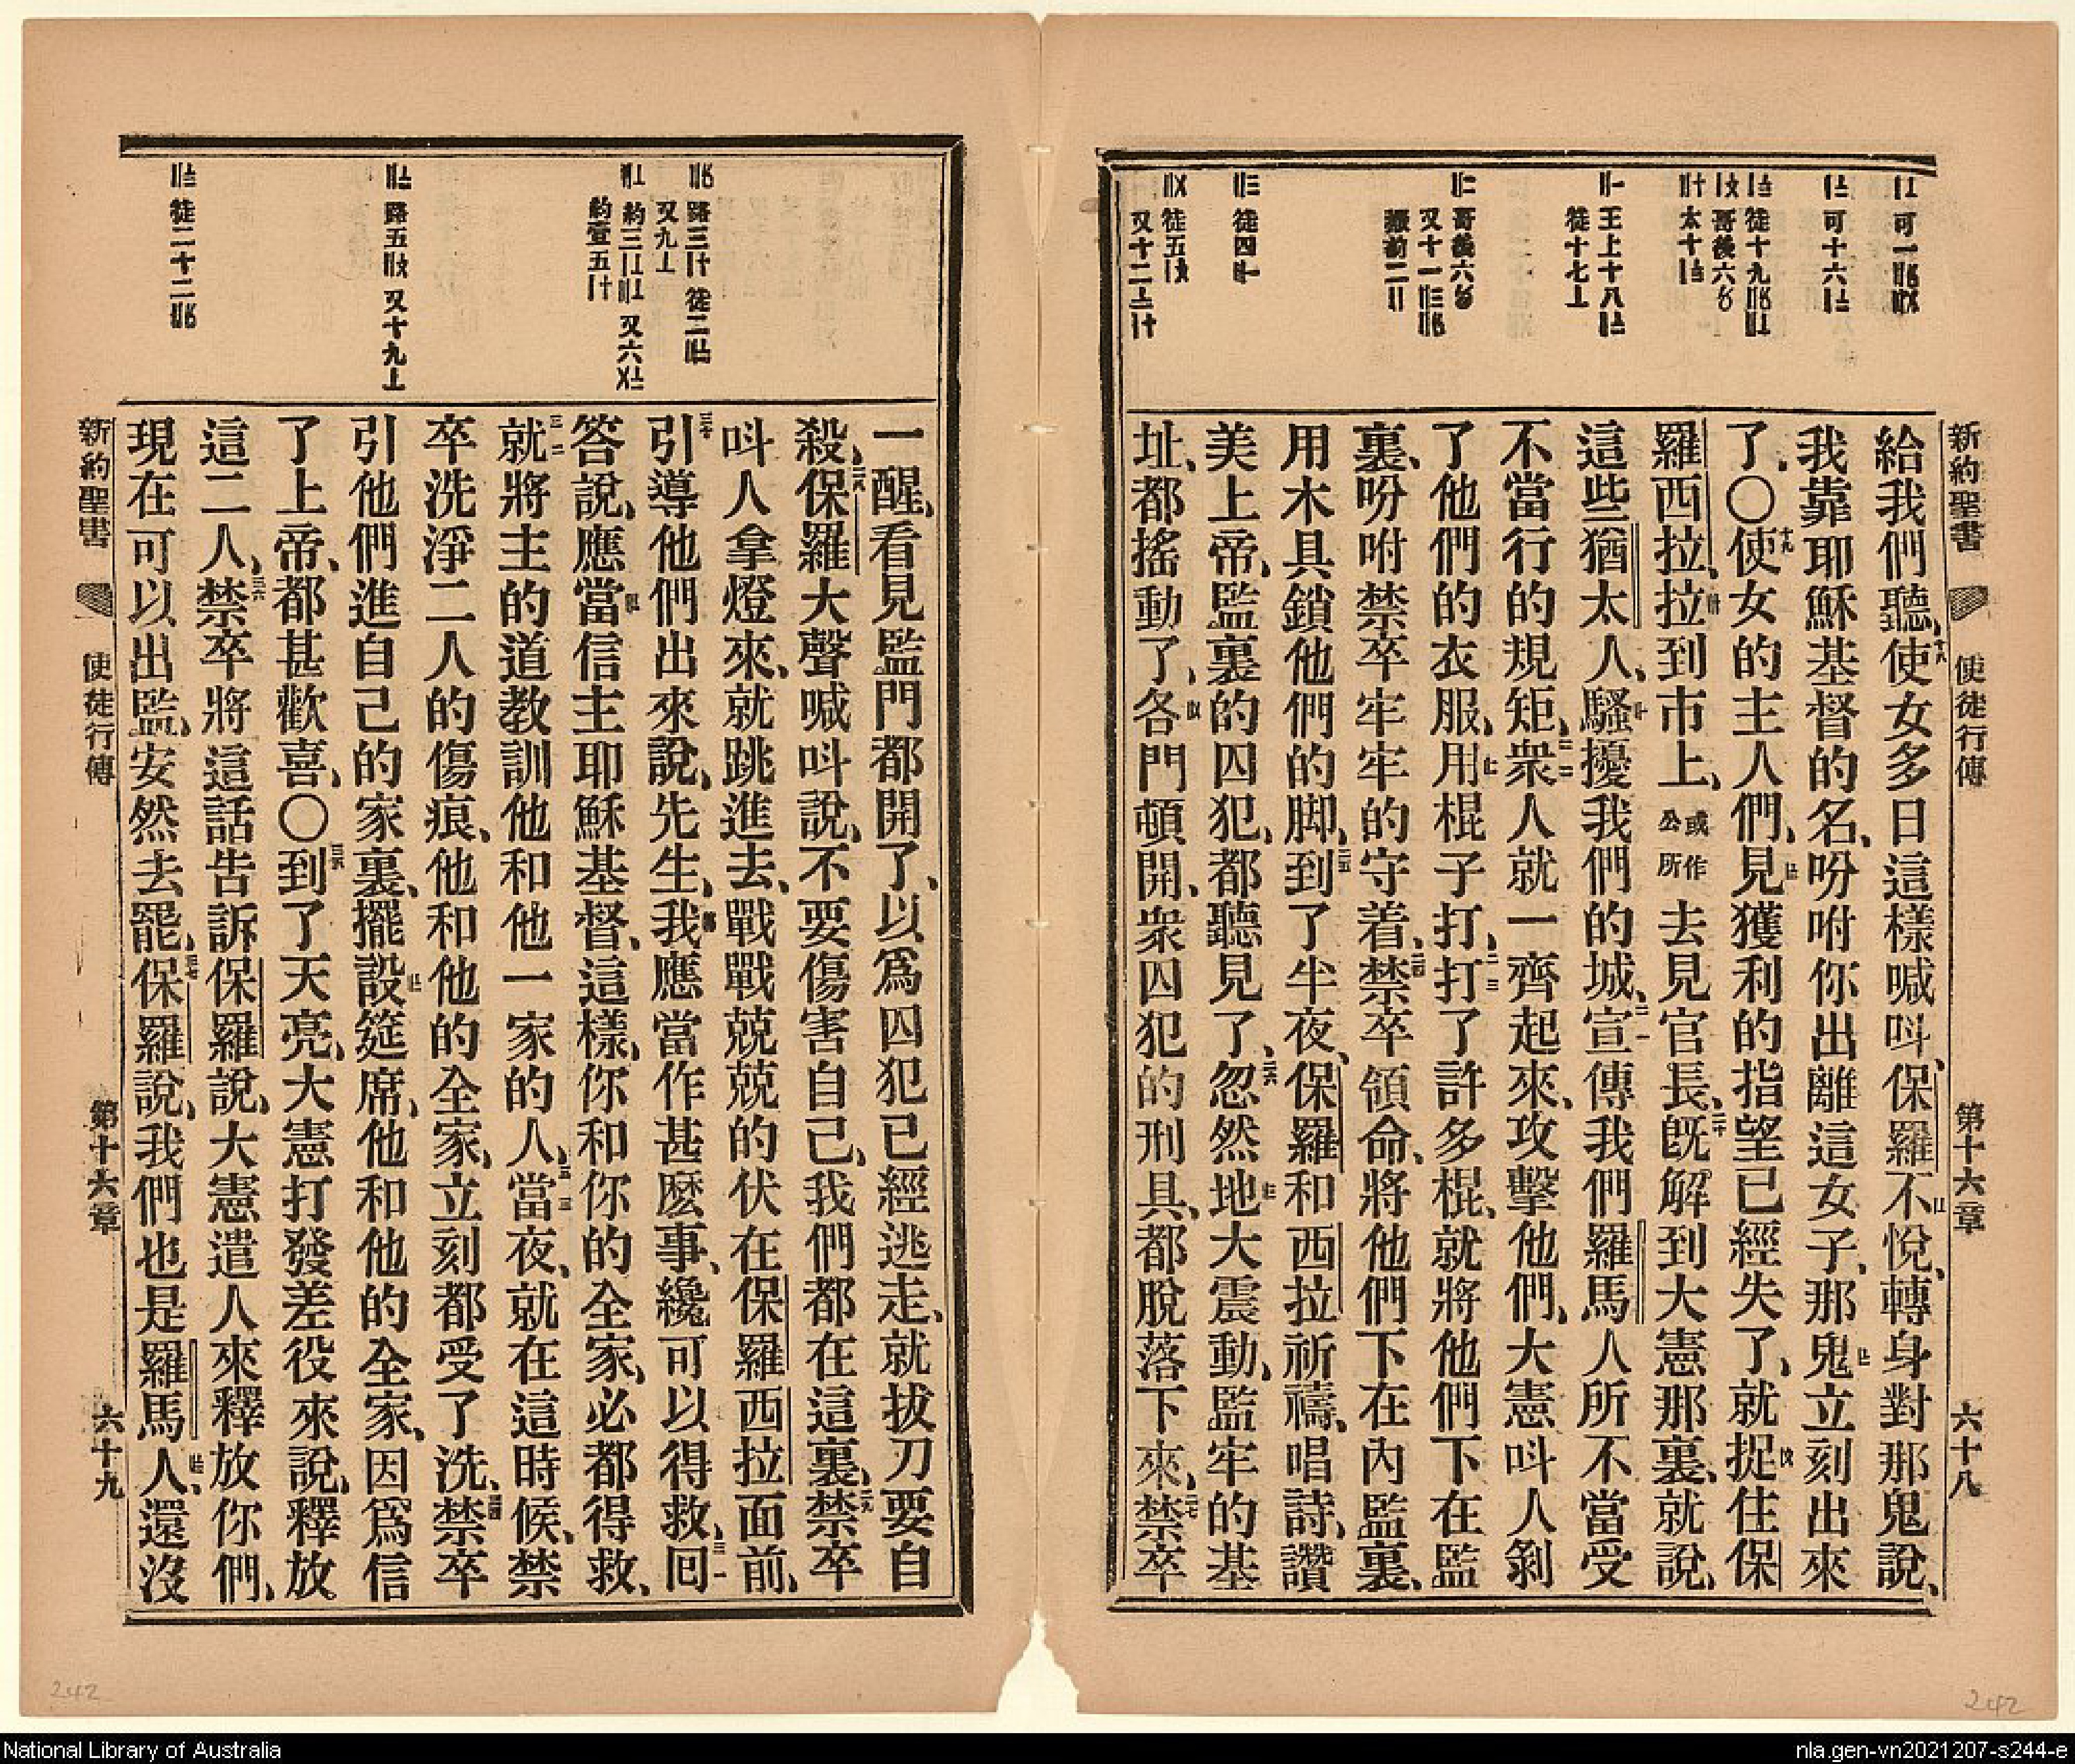 新約聖書 使徒行傳 第十六章 六十八
給我們聽、使女多日這樣喊呌、保羅不悅、轉身對那鬼說、
我靠耶穌基督的名、吩咐你出離這女子、那鬼立刻出來
了。〇使女的主人們、見獲利的指望已經失了、就捉住保
羅西拉、拉到市上、或作公所去見官長、旣解到大憲那裏、就說、
這些猶太人、騷擾我們的城、宣傳我們羅馬人所不當受
不當行的規矩、衆人就一齊起來、攻擊他們、大憲呌人剝
了他們的衣服、用棍子打、打了許多棍、就將他們下在監
裏、吩咐禁卒牢牢的守着、禁卒領命、將他們下在內監裏、
用木具鎖他們的脚、到了半夜、保羅和西拉祈禱、唱詩、讚
美上帝、監裏的囚犯、都聽見了、忽然地大震動、監牢的基
址、都搖動了、各門頓開、衆囚犯的刑具、都脫落下來、禁卒
一醒、看見監門都開了、以爲囚犯已經逃走、就拔刃要自
殺、保羅大聲喊呌說、不要傷害自己、我們都在這裏、禁卒
呌人拿燈來、就跳進去、戰戰兢兢的伏在保羅西拉面前、
引導他們出來說、先生、我應當作甚麽事、纔可以得救、回
答說、應當信主耶穌基督、這樣、你和你的全家、必都得救、
就將主的道教訓他和他一家的人、當夜、就在這時候、禁
卒洗淨二人的傷痕、他和他的全家、立刻都受了洗、禁卒
引他們進自己的家裏、擺設筵席、他和他的全家、因爲信
了上帝、都甚歡喜、〇到了天亮、大憲打發差役來說、釋放
這二人、禁卒將這話告訴保羅說、大憲遣人來釋放你們、
現在可以出監、安然去罷、保羅說、我們也是羅馬人、還沒
新約聖書 使徒行傳 第十六章 六十九
242
242
National Library of Australia
nla.gen-vn2021207-s244-e